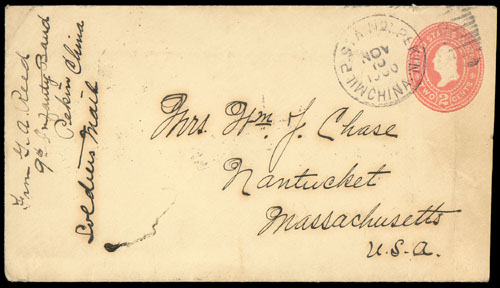 From G. A. Reed
9th Infantry Band
Pekin China
Soldiers Mail
NOV
10
1900
CHINA
UNITED STATES
TWO 2 CENTS
Mrs. Wm J. Chase
Nantucket
Massachusetts
U.S.A.